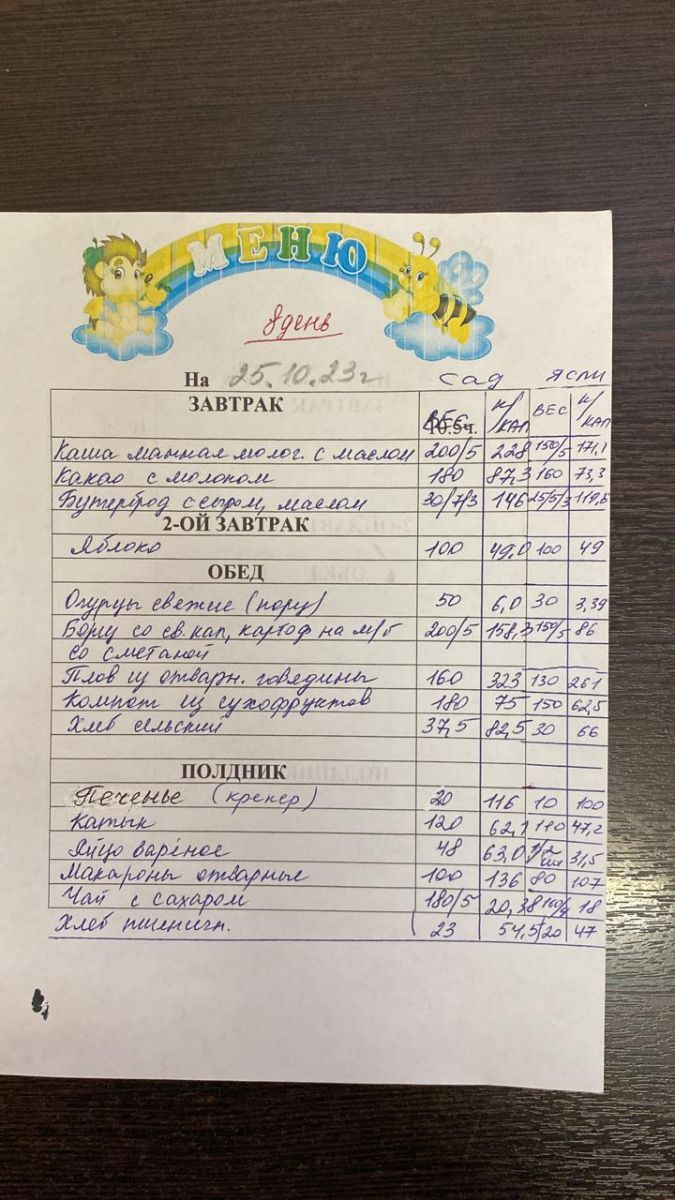 МЕНЮ
8 день
На 25.10.23г. сад ясли
ЗАВТРАК вес 10.5ч. к/кал вес к/кал
Каша манная молог. с маслом 200/5 228 150/5 171,1
Какао с молоком 180 87,3 160 73,3
Бутерброд с сыром, маслом 30/7/3 146 25/5/3 119,6
2-ОЙ ЗАВТРАК
Яблоко 100 49.0 100 49
ОБЕД
Огурцы свежие (порц) 50 6,0 30 3,39
Борщ со св. кап, картоф на м/б 200/5 158,3 150/5 86
со сметаной
Плов из отварн. говядины 160 323 130 261
Компот из сухофруктов 180 75 150 62,5
Хлеб сельский 37,5 82,5 30 66
ПОЛДНИК
Печенье (крекер) 20 116 10 100
Катык 120 62,1 110 47,2
Яйцо варёное 48 63,0 1/2 шт 31,5
Макароны отварные 100 136 80 107
Чай с сахаром 180/5 20,38 160/4 18
Хлеб пшеничн. 23 54,5 20 47